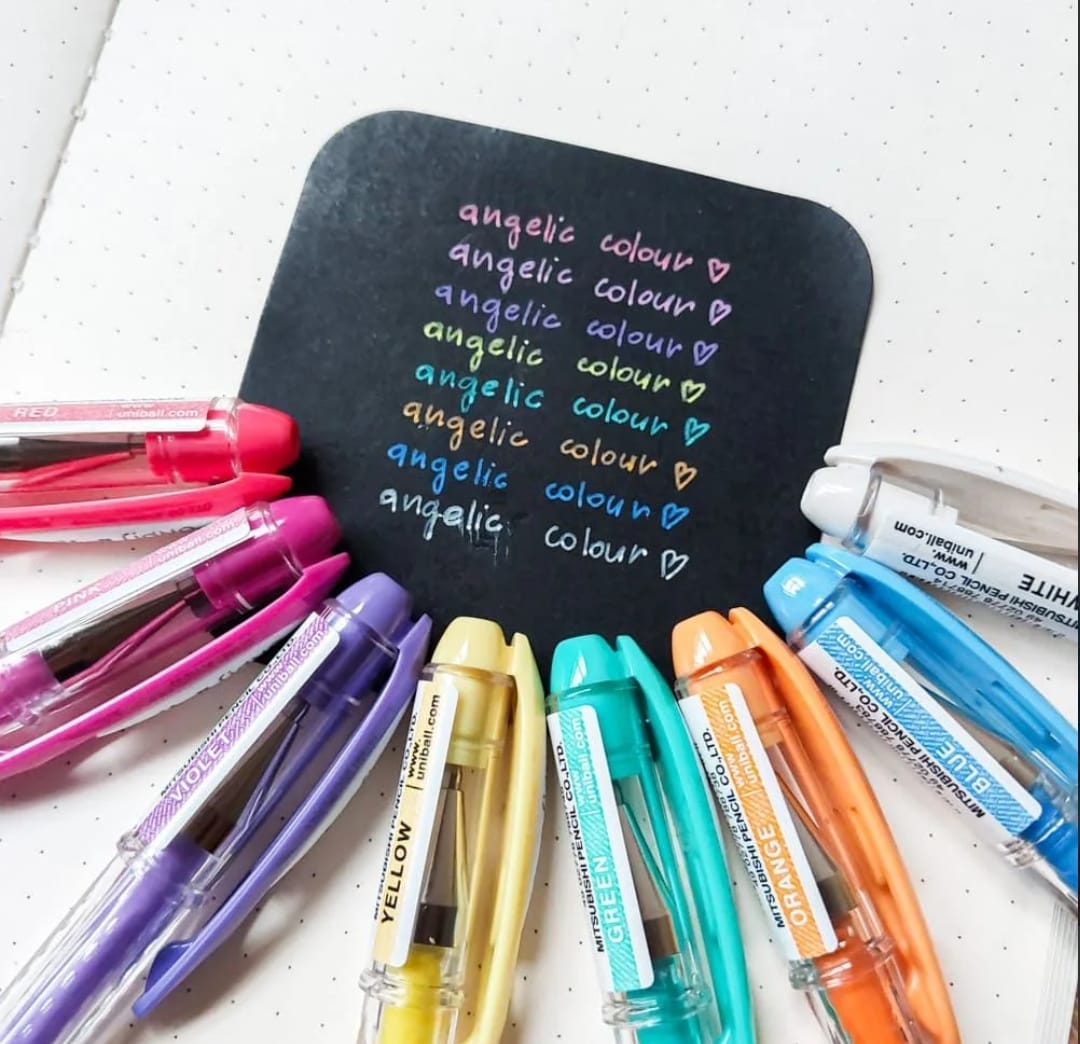 angelic colour ♡
angelic colour ♡
angelic colour ♡
angelic colour ♡
angelic colour ♡
angelic colour ♡
angelic colour ♡
angelic colour ♡
RED
uniball.com
PINK
uniball.com
VIOLET
www.
uniball.com
YELLOW
www.
uniball.com
MITSUBISHI PENCIL CO.,LTD.
GREEN
www.
uniball.com
MITSUBISHI PENCIL CO.,LTD.
ORANGE
www.
uniball.com
MITSUBISHI PENCIL CO.,LTD.
BLUE
www.
uniball.com
MITSUBISHI PENCIL CO.,LTD.
WHITE
www.
uniball.com
MITSUBISHI PENCIL CO.,LTD.